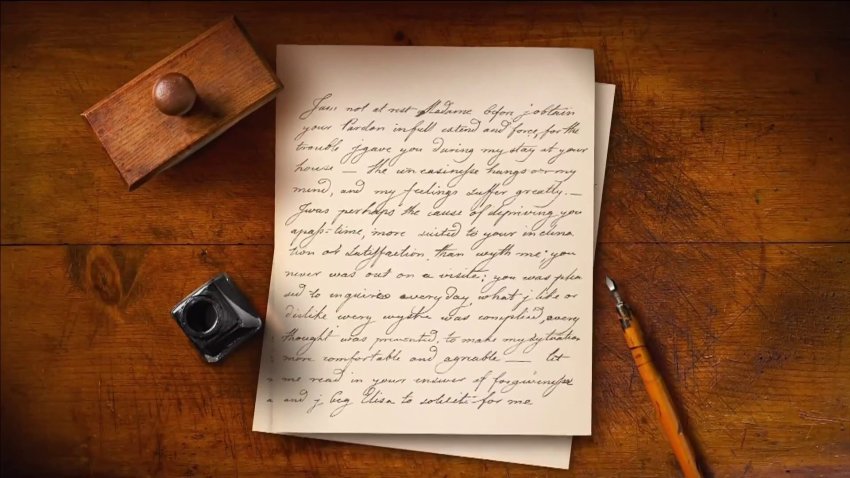 J am not at rest Madame befor j obtain
your Pardon in full extend and force, for the
trouble j gave you during my stay at your
house — the un easinesse hangs o-r my
mind, and my feelings suffer greatly. —
J was perhaps the cause of depriving you
a pass-time, more suited to your inclina
tion and satisffaction, than wyth me, you
never was out on a visite; you was plea
sed to enquire every day, what j like or
dislike every wysh was complied, every
thought was prevented, to make my sytuation
more comfortable and agreable — let
me read in your answer of forgivenesse
and j beg Elisa to sollisit for me